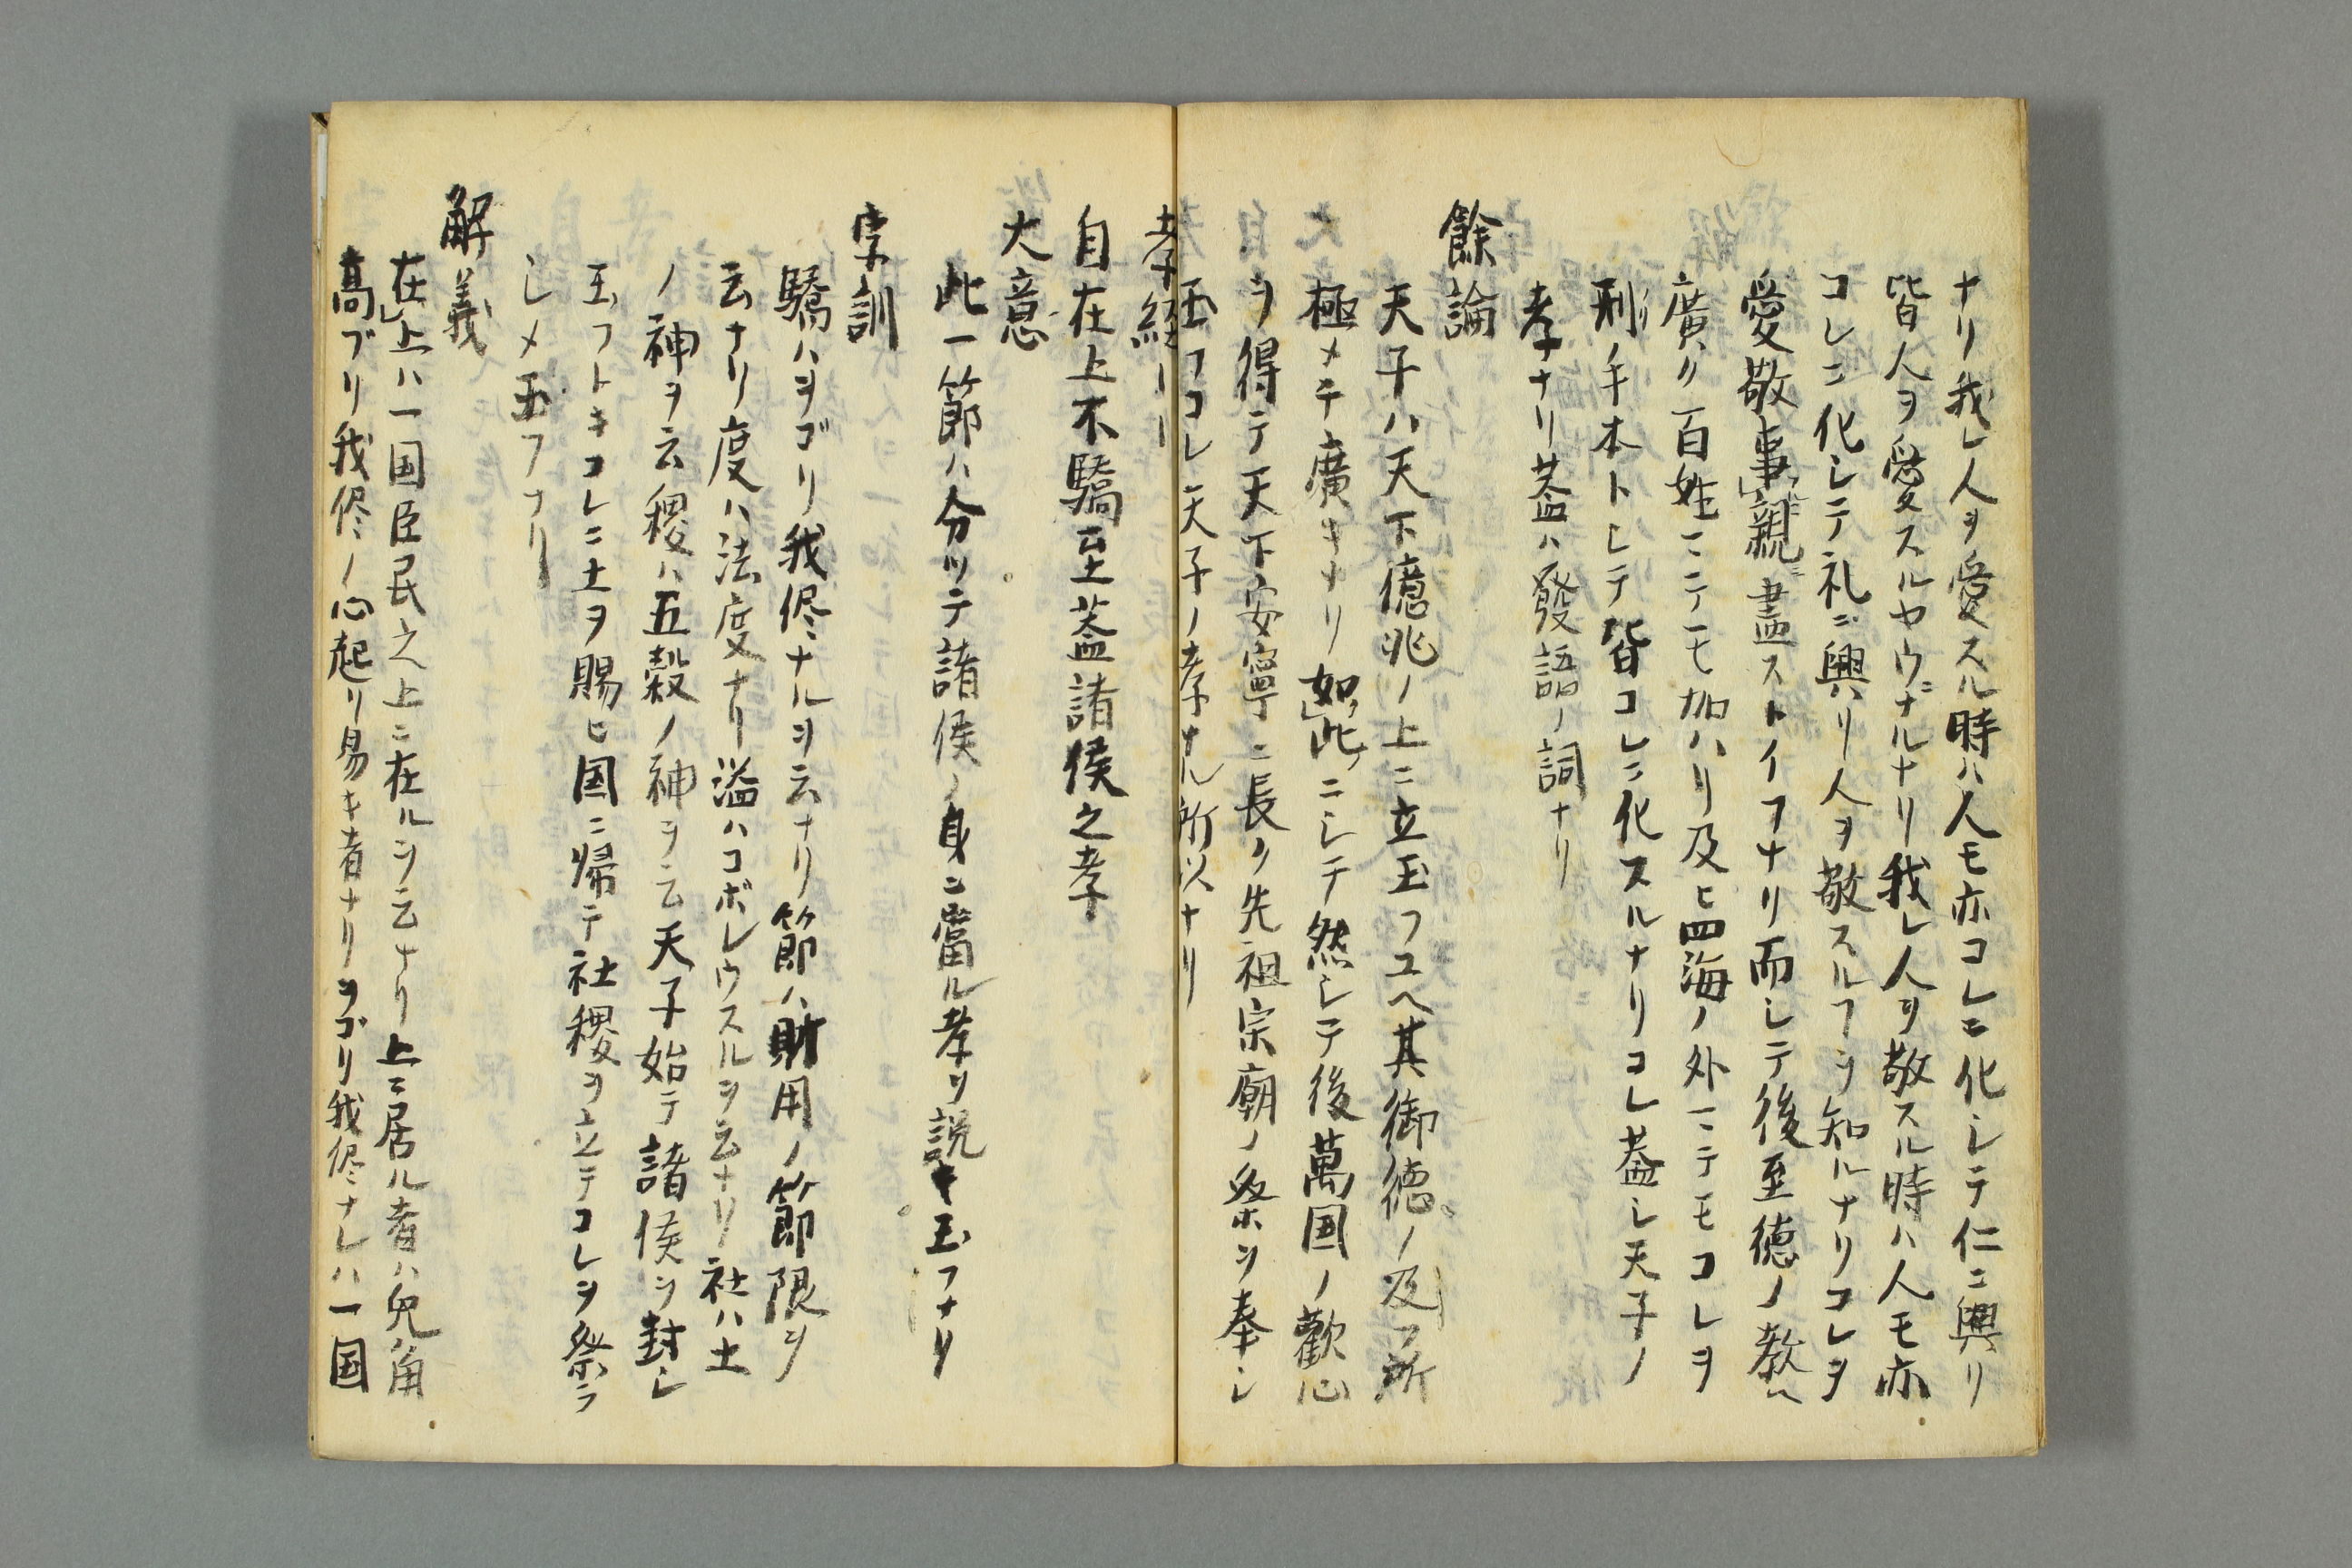 ナリ我レ人ヲ愛スル時ハ人モ亦コレニ化シテ仁ニ興リ
皆人ヲ愛スルヤウニナルナリ我レ人ヲ敬スル時ハ人モ亦
コレニ化シテ礼ニ興リ人ヲ敬スルヿヲ知ルナリコレヲ
愛敬事親ニ盡ストイフナリ而シテ後至徳ノ教ヘ
廣ク百姓ニニテモ加ハリ及ヒ四海ノ外ニテモコレヲ
刑リ手本トシテ皆コレニ化スルナリコレ蓋シ天子ノ
孝ナリ蓋ハ發語ノ詞ナリ
餘論
天子ハ天下億兆ノ上ニ立玉フユヘ其御徳ノ及フ所
極メテ廣キナリ如此ニシテ然シテ後萬国ノ歡心
ヲ得テ天下安寧ニ長ク先祖宗廟ノ祭ヲ奉シ
玉フコレ天子ノ孝ナル所以ナリ
孝経
自在上不驕至蓋諸侯之孝
大意
此一節ハ分ツテ諸侯ノ身ニ當ル孝ヲ説キ玉フナリ
字訓
驕ハヲゴリ我侭ナルヲ云ナリ節ハ財用ノ節限ヲ
云ナリ度ハ法度ナリ溢ハコボレウスルヲ云ナリ社ハ土
ノ神ヲ云稷ハ五穀ノ神ヲ云天子始テ諸侯ヲ封シ
玉フトキコレニ土ヲ賜ヒ国ニ帰テ社稷ヲ立テコレヲ祭ラ
シメ玉フヿ
解義
在上ハ一国臣民之上ニ在ルヲ云ナリ上ニ居ル者ハ兎角
高ブリ我侭ノ心起リ易キ者ナリヲゴリ我侭ナレハ一国